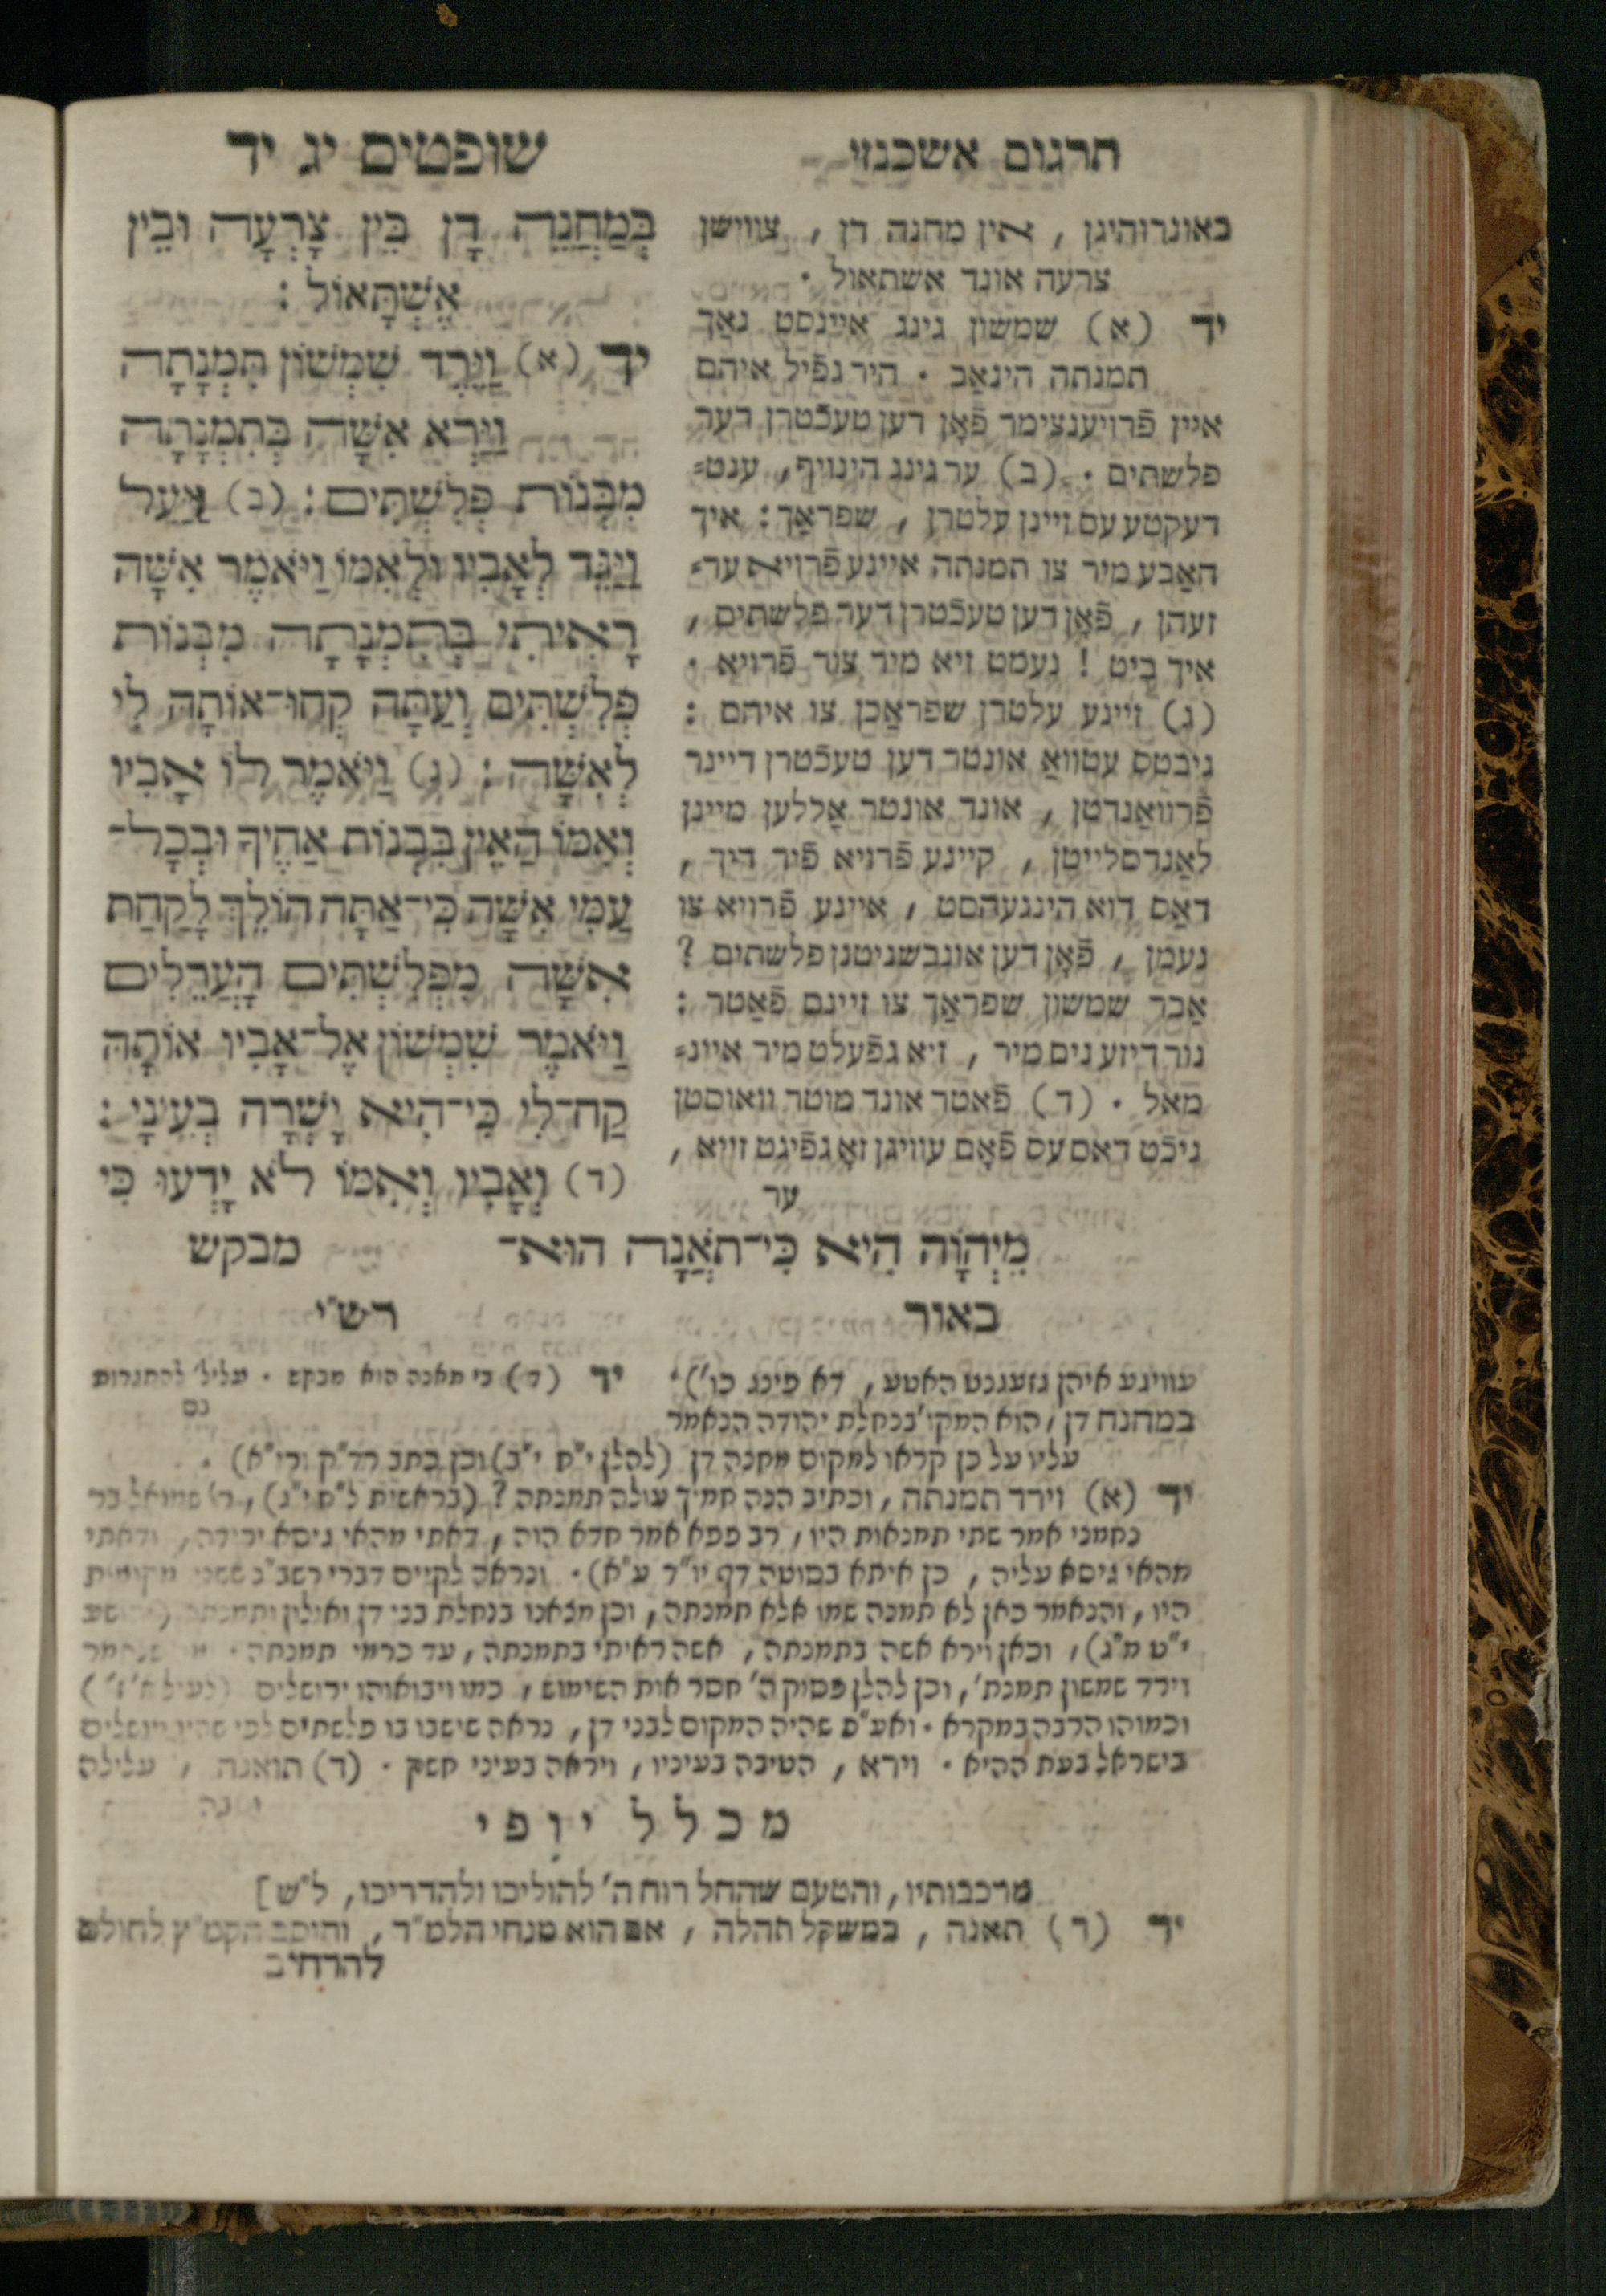 תרגום אשכנזי
שופטים יג יד
באונרוהיגן , אין מחנה דן , צווישן
צרעה אונד אשתאול .
יד (א) שמשון גינג איינסט נאַך
תמנתה הינאַב . היר גפֿיל איהם
איין פֿרויענצימר פֿאָן דען טעכֿטרן דער
פלשתים . (ב) ער גינג הינויף , ענט=
דעקטע עס זיינן עלטרן , שפראַך : איך
האַבע מיר צו תמנתה איינע פֿרויא ער=
זעהן , פֿאָן דען טעכֿטרן דער פלשתים ,
איך ביט ! נעמט זיא מיר צור פֿרויא .
(ג) זיינע עלטרן שפראַכן צו איהם :
גיבטס עטוואַ אונטר דען טעכֿטרן דיינר
פֿרוואַנדטן , אונד אונטר אַללען מיינן
לאַנדסלייטן , קיינע פֿרויא פֿיר דיך ,
דאַס דוא הינגעהסט , איינע פֿרויא צו
נעמן , פֿאָן דען אונבשניטנן פלשתים ?
אַבר שמשון שפראַך צו זיינם פֿאַטר :
נור דיזע נים מיר , זיא גפֿעלט מיר איינ=
מאל . (ד) פֿאטר אונד מוטר וואוסטן
ניכֿט דאס עס פֿאָם עוויגן זאָ גפֿיגט זייא ,
ער
בְּמַחֲנֵה דָן בֵּין צָרְעָה וּבֵין
אֶשְׁתָּאוֹל :
יד (א) וַיֵּרֶד שִׁמְשׁוֹן תִּמְנָתָה
וַיַּרְא אִשָּׁה בְּתִמְנָתָה
מִבְּנוֹת פְּלִשְׁתִּים : (ב) וַיַּעַל
וַיַּגֵּד לְאָבִיו וּלְאִמּוֹ וַיֹּאמֶר אִשָּׁה
רָאִיתִי בְתִמְנָתָה מִבְּנוֹת
פְּלִשְׁתִּים וְעַתָּה קְחוּ־אוֹתָהּ לִּי
לְאִשָּׁה : (ג) וַיֹּאמֶר לוֹ אָבִיו
וְאִמּוֹ הַאֵין בִּבְנוֹת אַחֶיךָ וּבְכָל־
עַמִּי אִשָּׁה כִּי־אַתָּה הוֹלֵךְ לָקַחַת
אִשָּׁה מִפְּלִשְׁתִּים הָעֲרֵלִים
וַיֹּאמֶר שִׁמְשׁוֹן אֶל־אָבִיו אוֹתָהּ
קַח־לִי כִּי־הִיא יָשְׁרָה בְעֵינָי :
(ד) וְאָבִיו וְאִמּוֹ לֹא יָדְעוּ כִּי
מֵיְהוָֹה הִיא כִּי־תֹאֲנָה הוּא־
מבקש
באור
עוויגע איהן געזענגט האטע, דא פינג כו')
במחנה דן, הוא המקו' בנחלת יהודה הנאמר
עליו על כן קראו למקום מחנה דן (להלן י"ח י"ב) וכן כתב רד"ק ורי"א) .
יד (א) וירד תמנתה, וכתיב הנה חמיך עולה תמנתה ? (בראשית ל"ח י"ג), ר' שמואל בר
נחמני אמר שתי תמנאות היו, רב פפא אמר חדא הוה, דאתי מהאי גיסא ירידה, ודאתי
מהאי גיסא עליה, כן איתא בסוטה דף יו"ד ע"א). ונראה לקיים דברי רשב"נ ששני מקומות
היו, והנאמר כאן לא תמנה שמו אלא תמנתה, וכן מצאנו בנחלת בני דן ואילון ותמנתה (יהושע
י"ט מ"ג), וכאן וירא אשה בתמנתה, אשה ראיתי בתמנתה, עד כרמי תמנתה .
וירד שמשון תמנת', וכן להלן פסוק ה' חסר אות השימוש, כמו ויבואוהו ירושלים
וכמוהו הרבה במקרא . ואע"פ שהיה המקום לבני דן, נראה שישבו בו פלשתים לפי שהיו מושלים
בישראל בעת ההיא . וירא, הטיבה בעיניו, ויראה בעיני חשק . (ד) תואנה , עלילה
רש"י
יד (ד) כי תאנה הוא מבקש . עליל' להתגרות
גם
מכלל יופי
מרכבותיו, והטעם שהחל רוח ה' להוליכו ולהדריכו, ל"ש]
יד (ד) תאנה , במשקל תהלה , אם הוא מנחי הלמ"ד , והוסב הקמ"ץ לחולם
להרחיב